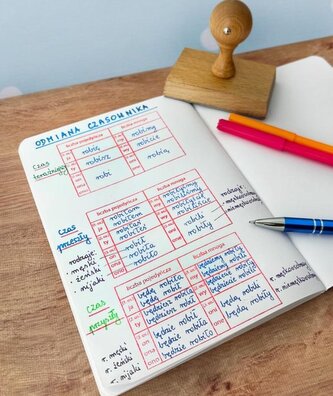 ODMIANA CZASOWNIKA
Czas
teraźniejszy
liczba pojedyncza
liczba mnoga
ja robię
my robimy
ty robisz
wy robicie
on
ona robi
ono
oni robią
one
Czas
przeszły
rodzaje:
• męski
• żeński
• nijaki
liczba pojedyncza
liczba mnoga
ja robiłam
robiłem
my robiliśmy
ty robiłaś
robiłeś
wy
on robił
ona robiła
ono robiło
oni robili
one robiły
rodzaje:
Czas
przyszły
r. męski
r. żeński
r. nijaki
liczba pojedyncza
liczba mnoga
ja będę robiła
będę robił
my będziemy robili
będziemy robiły
ty będziesz robiła
będziesz robił
wy będziecie robili
będziecie robiły
on będzie robił
ona będzie robiła
ono będzie robiło
oni będą robili
one będą robiły